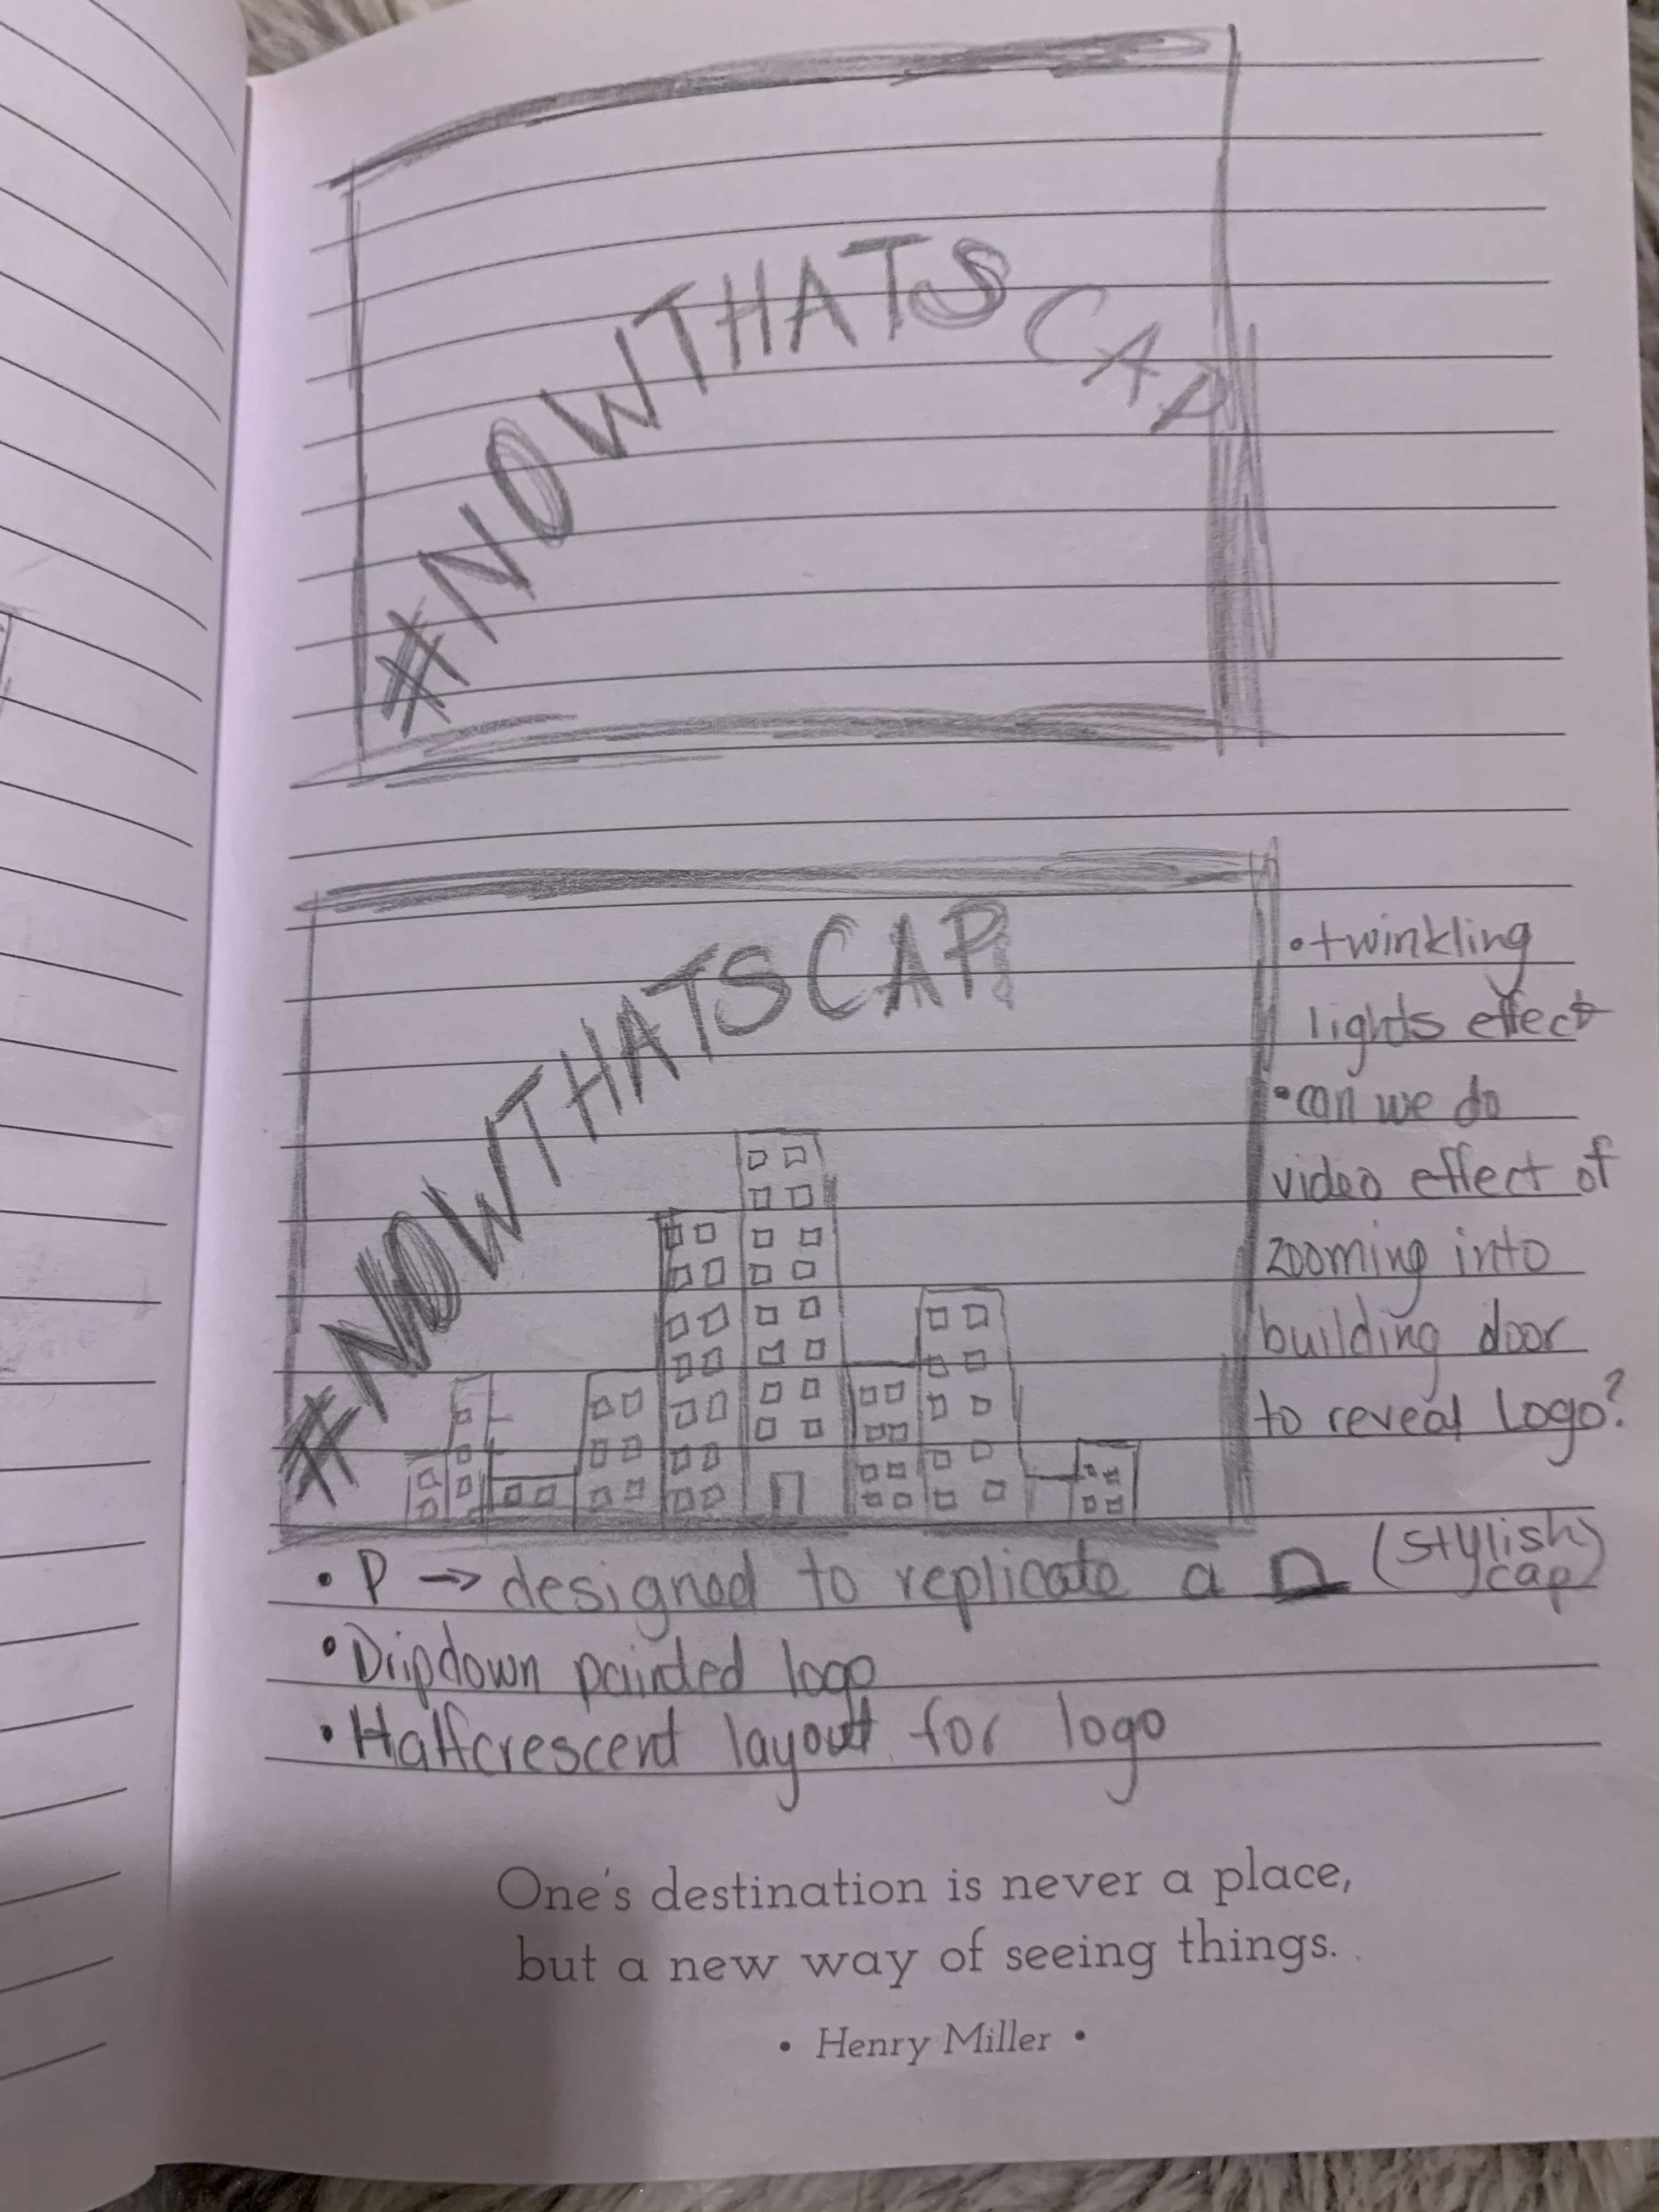 #NOWTHATSCAP
#NOWTHATSCAP
• twinkling
lights effect
• can we do
video effect of
zooming into
building door
to reveal logo?
• P → designed to replicate a (stylish
cap)
• Dripdown painted logo
• Halfcrescent layout for logo
One's destination is never a place,
but a new way of seeing things.
• Henry Miller •